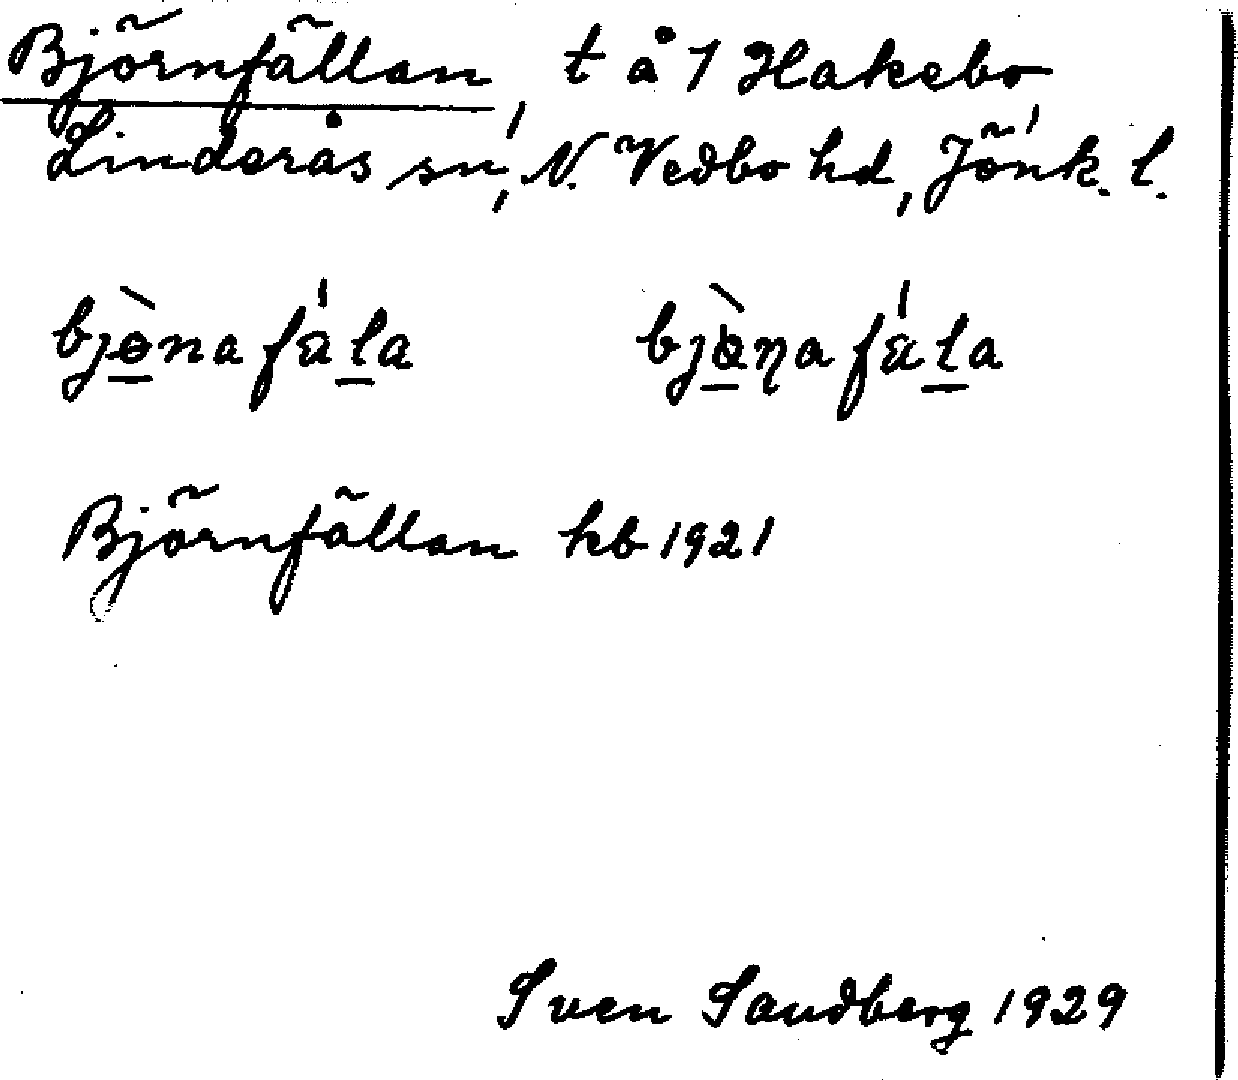 Björnfällan, t å 1 Hakebo
Linderås sn, N. Vedbo hd, Jönk. l.
bjɵ̱̀nafá̈ḻa bjɵ̱̀ŋafá̈ḻa
Björnfällan kb 1921
Sven Sandberg 1929